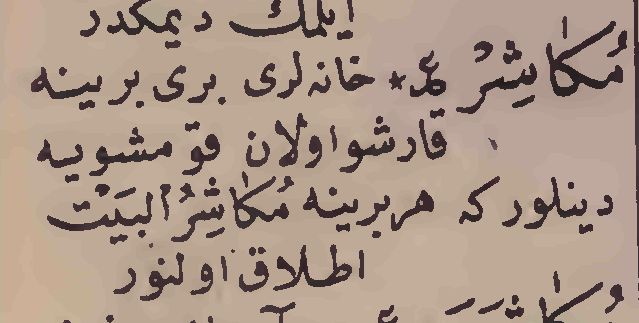 ايلمك ديمكدر
مُكَاشِرْ ع * خانه لرى برى برينه
قارشو اولان قوّمشويه
دينلور كه هر برينه مُكَاشِرُ الْبَيْت
اطلاق اولنور